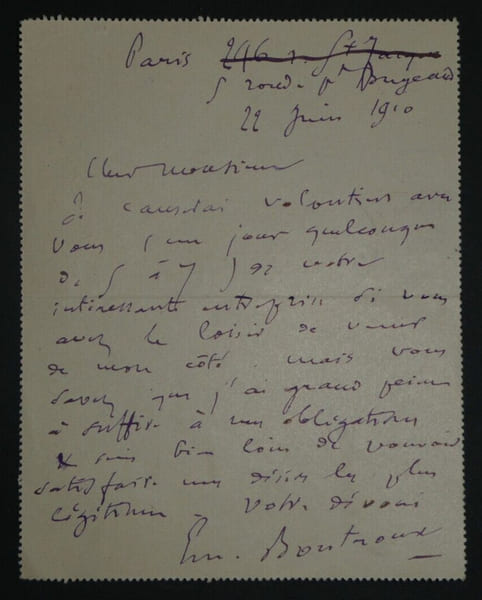 Paris 246 r. St Jacques
5 rond-pt Bugeaud
22 Juin 1910
Cher Monsieur
Je causerai volontiers avec
vous (un jour quelconque
de 5 à 7) de votre
intéressante entreprise si vous
avez le loisir de venir
de mon côté. Mais vous
savez que j'ai grand peine
à suffire à mes obligations
& suis bien loin de pouvoir
satisfaire mes désirs les plus
légitimes. Votre dévoué
Em. Boutroux